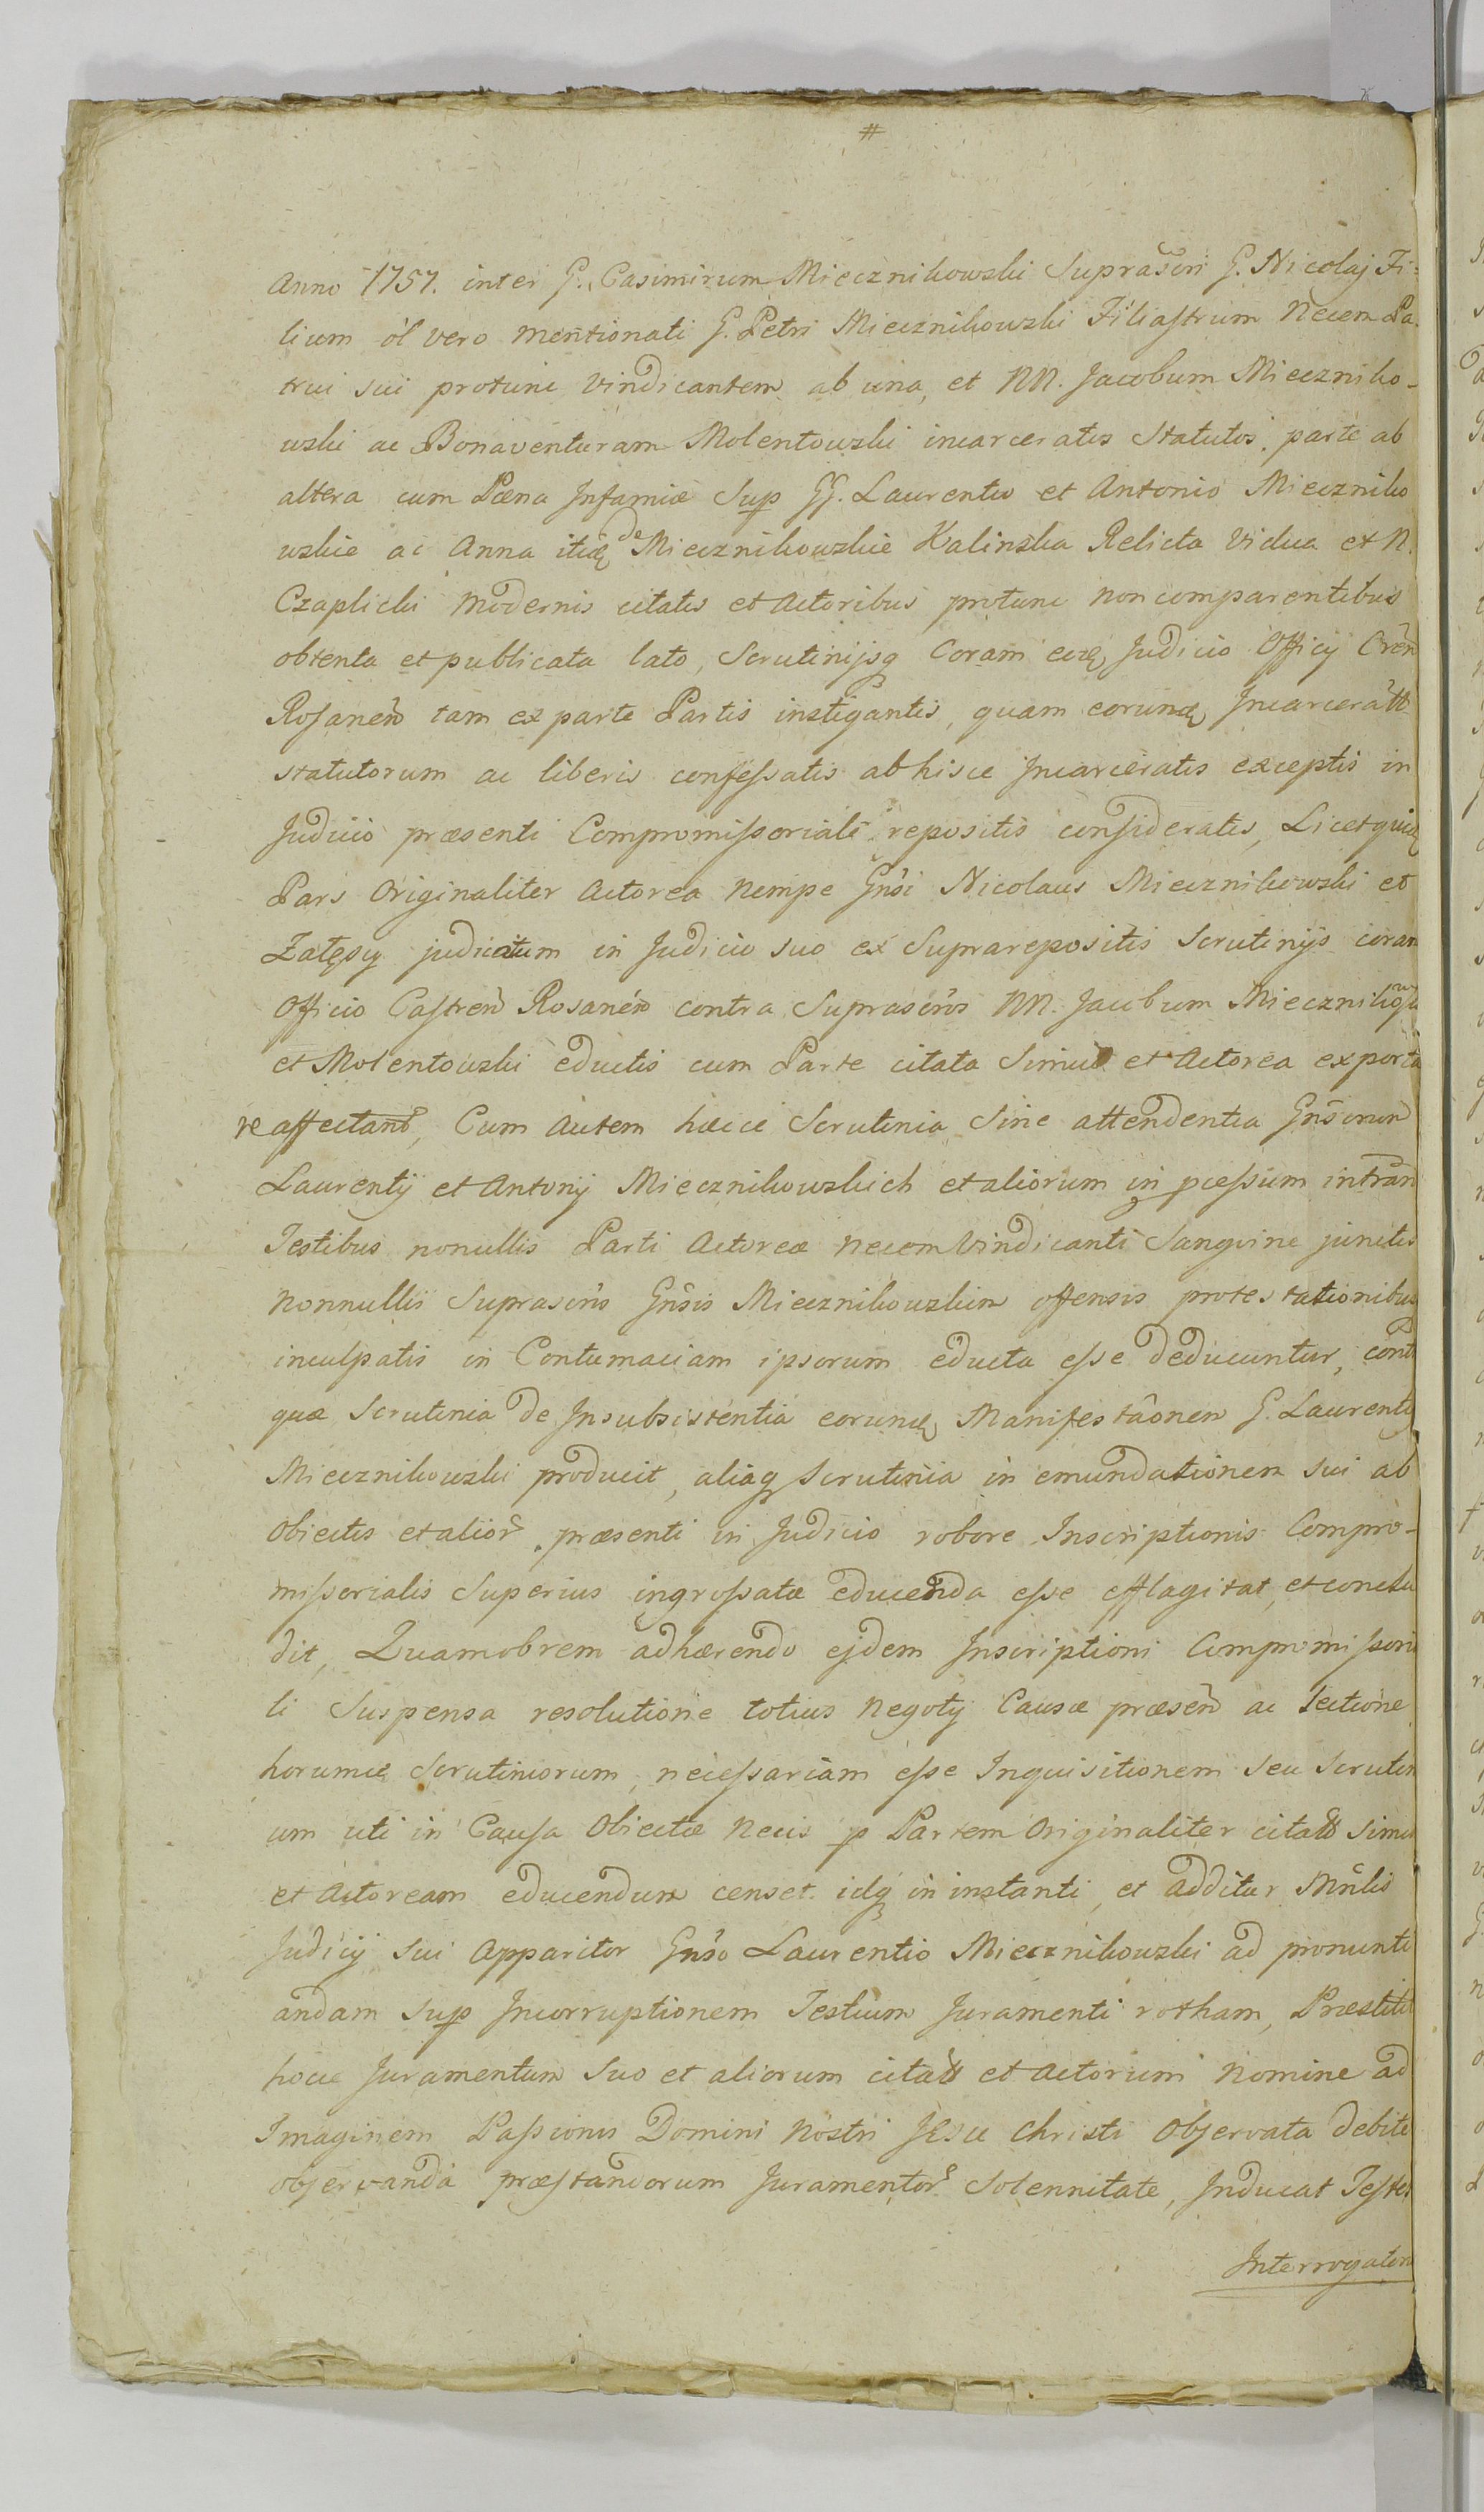 #
Anno 1757. inter G. Casimirum Miecznikowski Suprascri G. Nicolaj Fi=
lium ol vero mentionati G. Petri Miecznikowski Filiastrum Necem Pa-
trui sui protunc vindicantem ab una, et NN. Jacobum Mieczniko-
wski ac Bonaventuram Molentowski incarceratos Statutos, parte ab
altera cum Pæna Infamiæ Sup GG. Laurentio et Antonio Mieczniko
wskie ac Anna itidę de Miecznikowskie Kalinska Relicta Vidua et N.
Czaplicki Modernis citatis et Actoribus protunc non comparentibus
obtenta et publicata lato, Scrutinijsq Coram eoę Judicio Officij Cren
Rosanen tam ex parte Partis instigantis, quam eorundę Incarceratt
statutorum ac liberis confessatis ab hisce Incarceratis exceptis in
Judicio præsenti Compromissoriali repositis consideratis, Licet quidę
Pars Originaliter Actorea Nempe Gnsi Nicolaus Miecznikowski et
Załęscy judicatum in Judicio suo ex Suprarepositis Scrutinijs coram
Officio Castren Rosanen contra Suprascros NN. Jacobum Miecznikows
et Molentowski eductis cum Parte citata Simul et Actorea exporta
re affectant, Cum autem hæcce Scrutinia Sine attendentia Gnsorum
Laurentij et Antonij Miecznikowskich et aliorum in pcessum intran
Testibus nonullis Parti Actoreæ Necem Vindicanti Sanguine junctis
Nonnullis Suprascris Gnsis Miecznikowskim offensis protestationibus
inculpatis in Contumaciam ipsorum educta esse deducuntur, cont
quæ Scrutinia de Insubsistentia eorundę Manifestaonem G. Laurenti
Miecznikowski producit, aliaq Scrutinia in emundationem sui ab
Obiectis et alior præsenti in Judicio robore Inscriptionis Compro-
missorialis Superius ingrossatæ educenda esse efflagitat, et conclu
dit, Quamobrem adhærendo ejdem Inscriptioni Compromissoria
li Suspensa resolutione totius Negotij Causæ præsen ac lectione
horumce Scrutiniorum, necessariam esse Inquisitionem seu Scrutini
um uti in Causa Obiectæ Necis p Partem Originaliter citatt Simul
et Actoream educendum censet idq in instanti, et additur Mnlis
Judicij sui Apparitor Gnso Laurentio Miecznikowski ad pronunti
andam Sup Incorruptionem Testium Juramenti rotham, Præstito
hocce Juramentum Suo et aliorum citatt et Actorum Nomine ad
Imaginem Passionis Domini Nostri Jesu Christi Observata debite
observanda præstandorum Juramentor Solennitate, Inducat Testes
Interrogatori